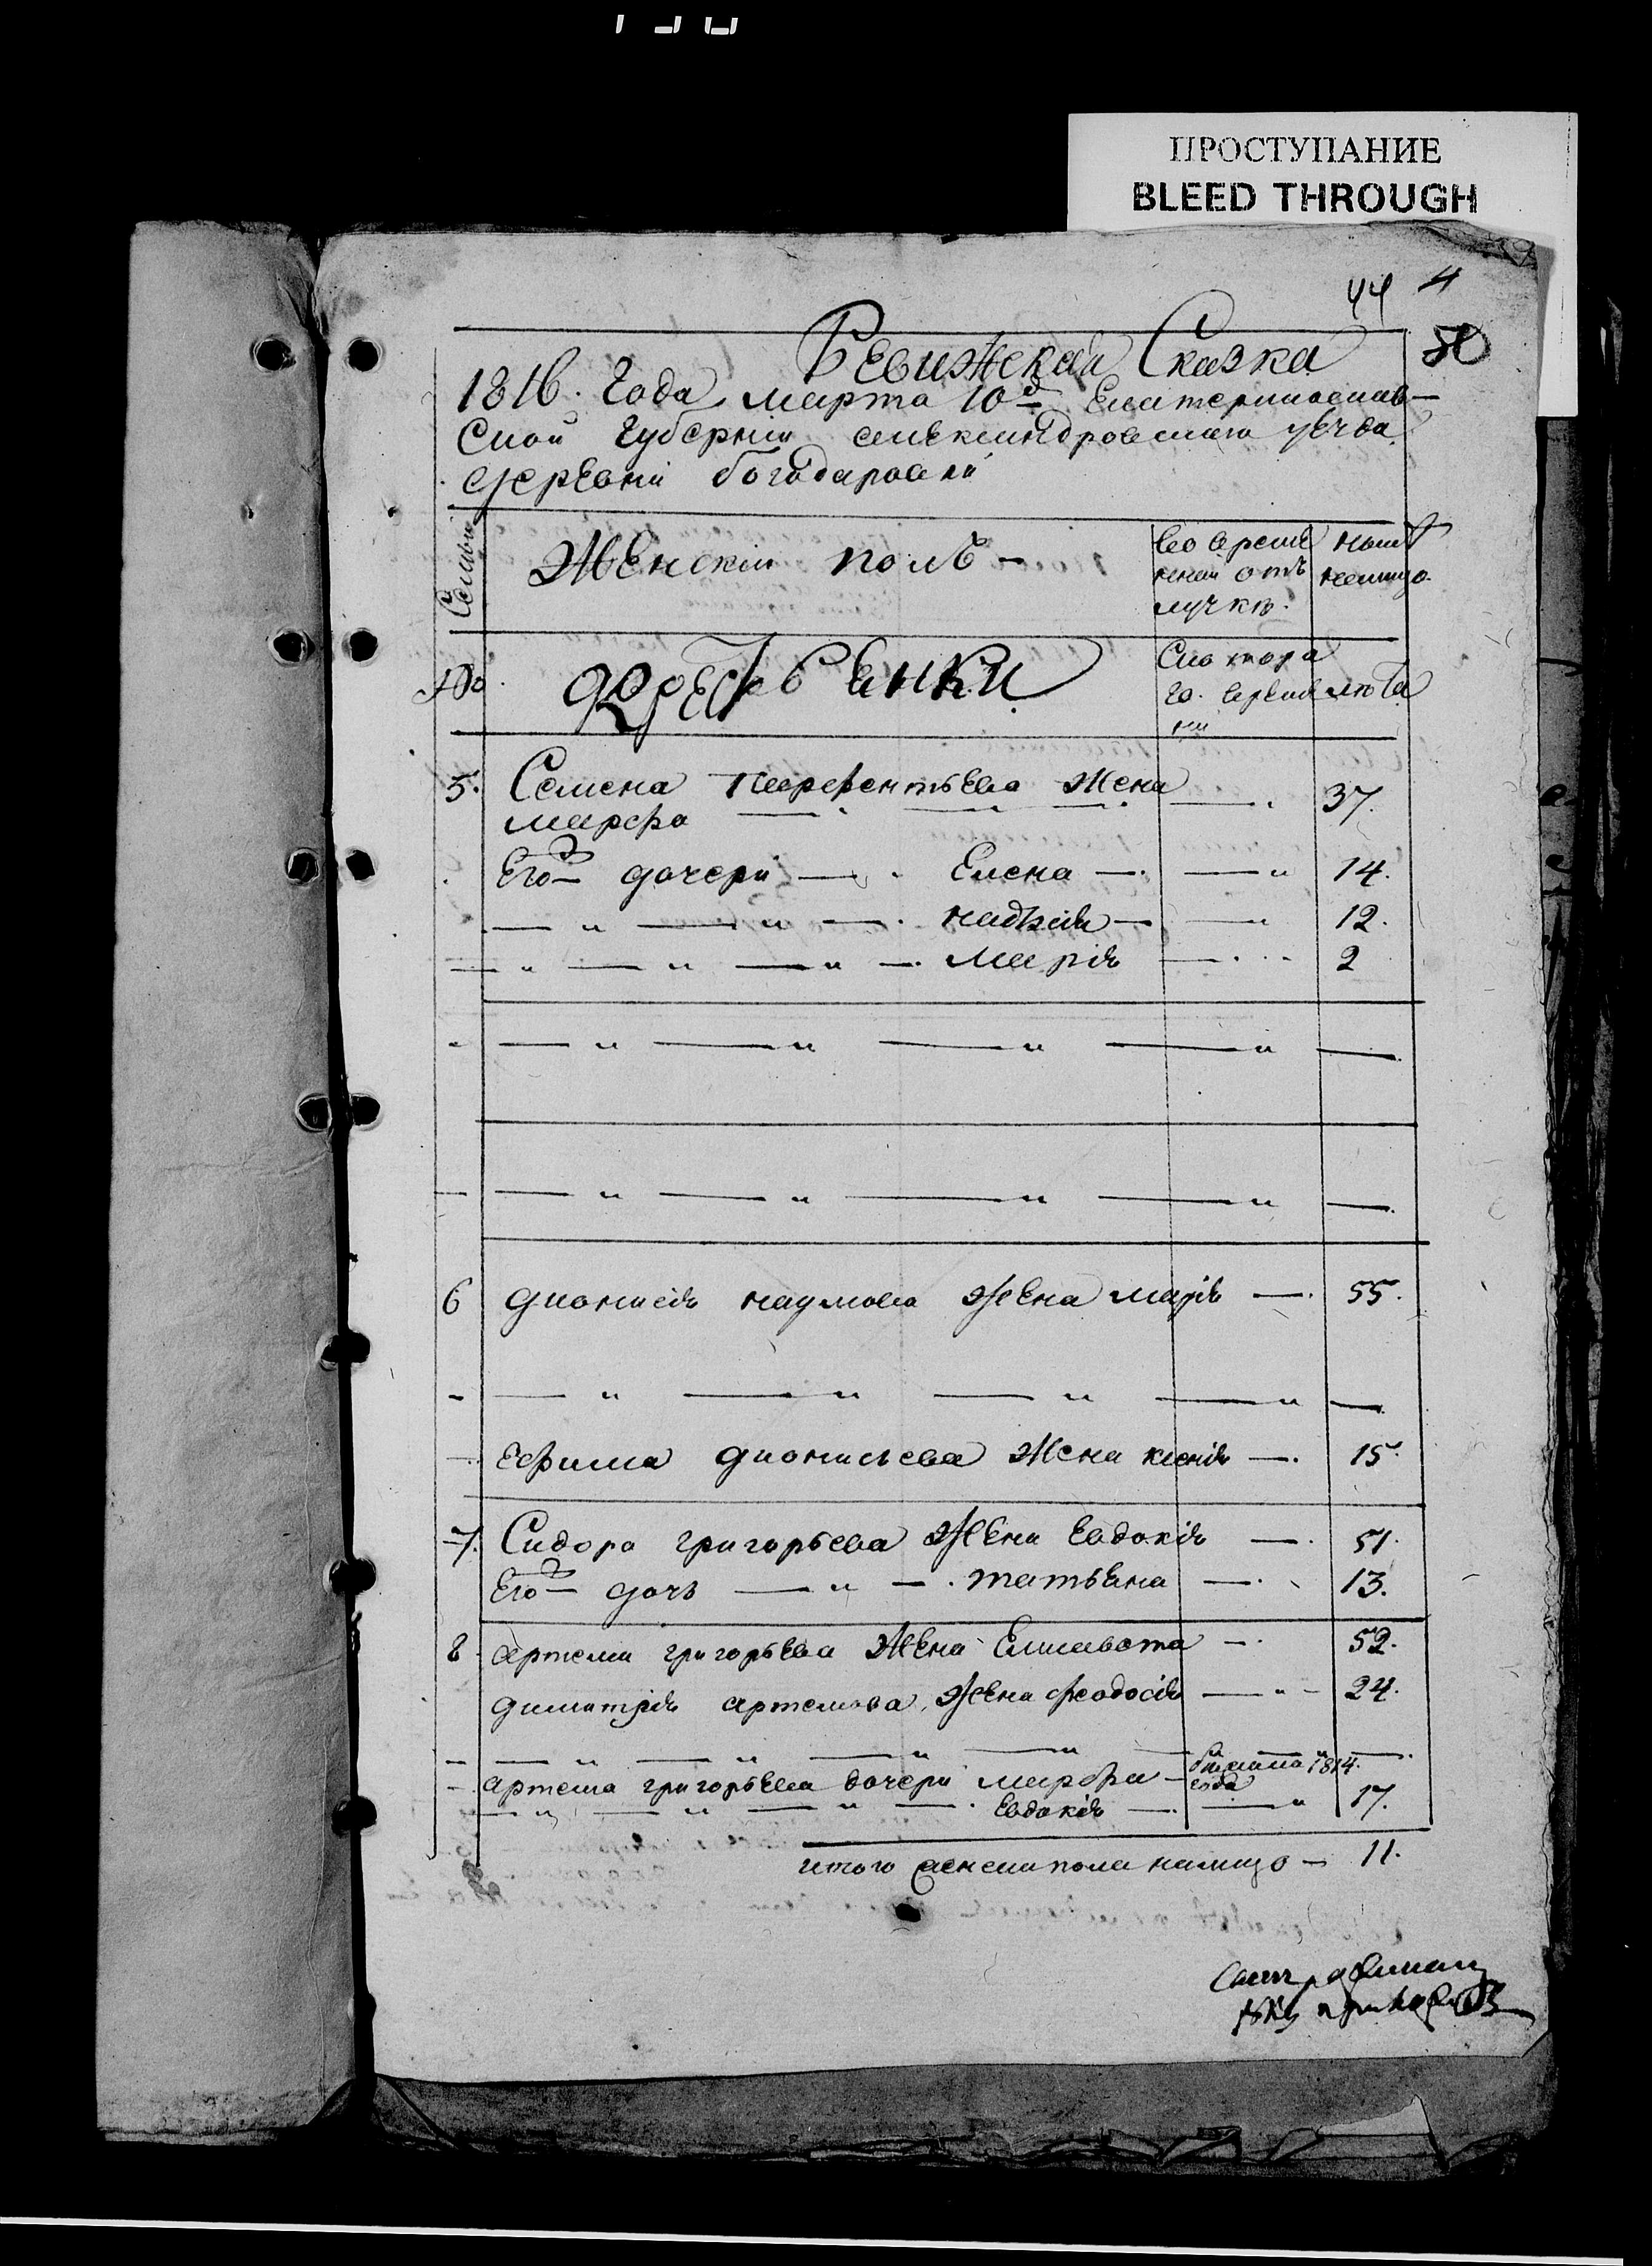 ПРОСТУПАНИЕ
BLEED THROUGH
44 4
50
Ревижская Сказка
1816. Года марта 10д Екатеринослав-
ской Губернии александровскаго уезда
деревни богодаровки
Семьи
Женскии полъ - во время ныне
ненаи отъ налицо.
лучкѣ.
№
Скотора
го. время лѣта
ни
5. Семена терентьева жена
марфа — 37.
Его дочери — Елена — 14.
— " — " — надѣжда — 12.
— " — " — " — Марія — 2
6 дионисія наумова жена марія — 55.
ефима дионисьева жена ксенія — 15.
7. Сидора григорьева жена Евдокія — 51.
Его дочь — " — татьяна — 13.
8 артема григорьева жена Елисавета — 52.
димитрія артемова жена феодосія — " — 24.
артема григорьева дочери марфа — 1814.
года
— " — " — " — Евдокія — " 17.
итого женска пола налицо — 11.